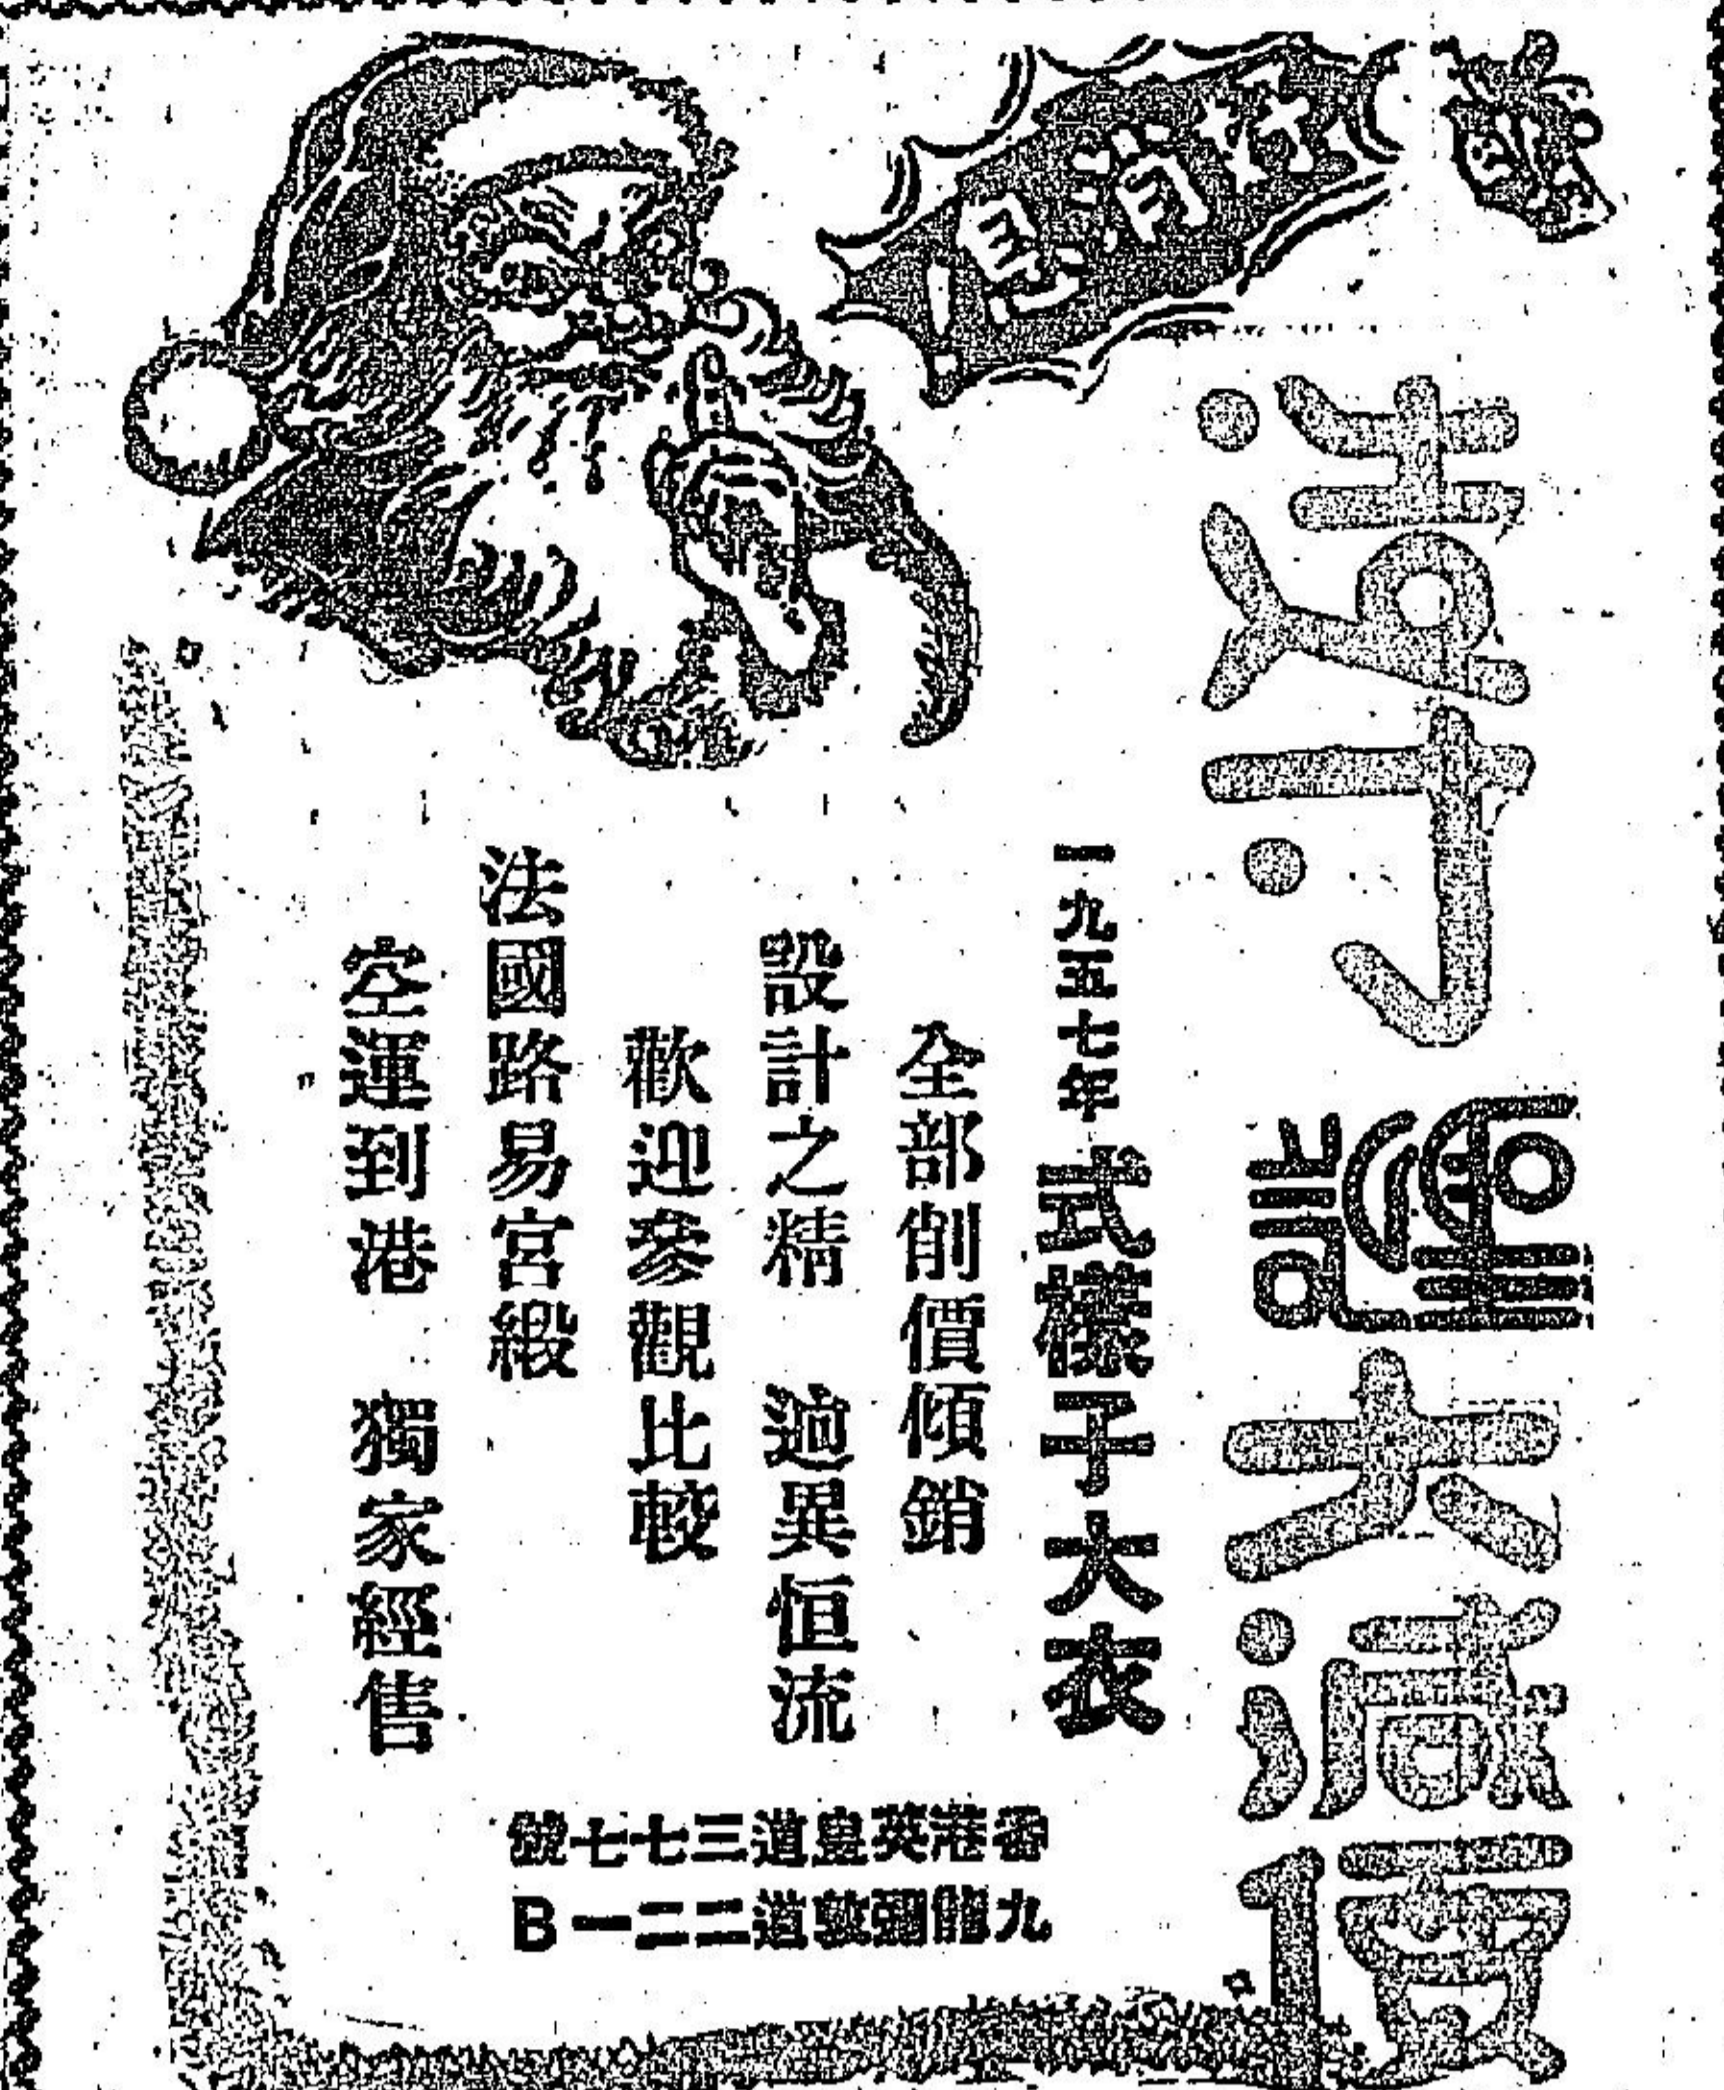 好消息!
造寸聖誕大減價
一九五七年式樣子大衣
全部削價傾銷
設計之精 逈異恒流
歡迎參觀比較
法國路易宮緞
空運到港 獨家經售
香港英皇道三七七號
九龍彌敦道二二一B